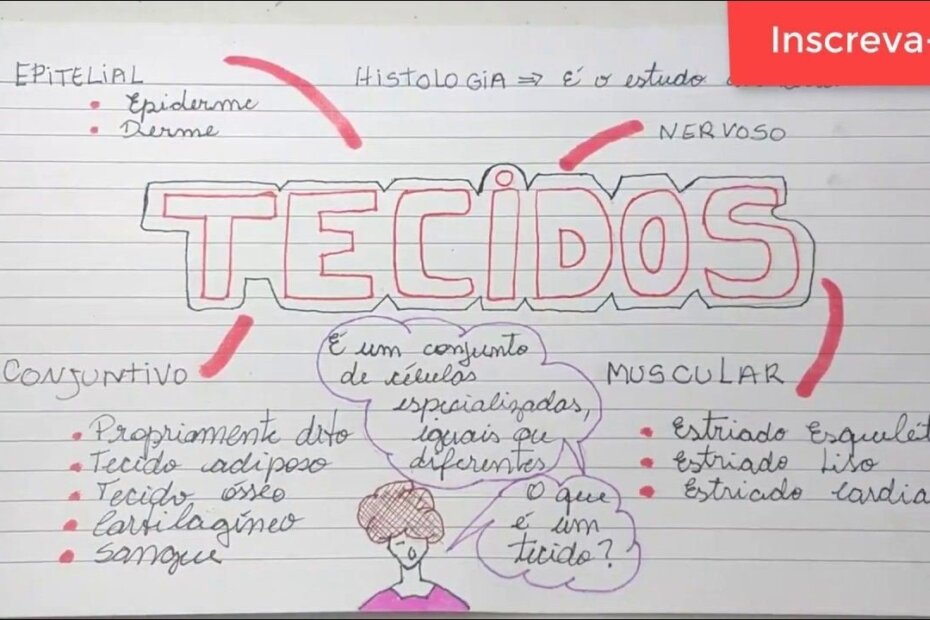 Inscreva-
EPITELIAL
• Epiderme
• Derme
HISTOLOGIA ⇒ É o estudo
NERVOSO
TECIDOS
CONJUNTIVO
• Propriamente dito
• Tecido adiposo
• Tecido ósseo
• Cartilagíneo
• Sangue
É um conjunto
de células
especializadas,
iguais ou
diferentes
O que
é um
tecido?
MUSCULAR
• Estriado Esquelét
• Estriado Liso
• Estriado Cardia